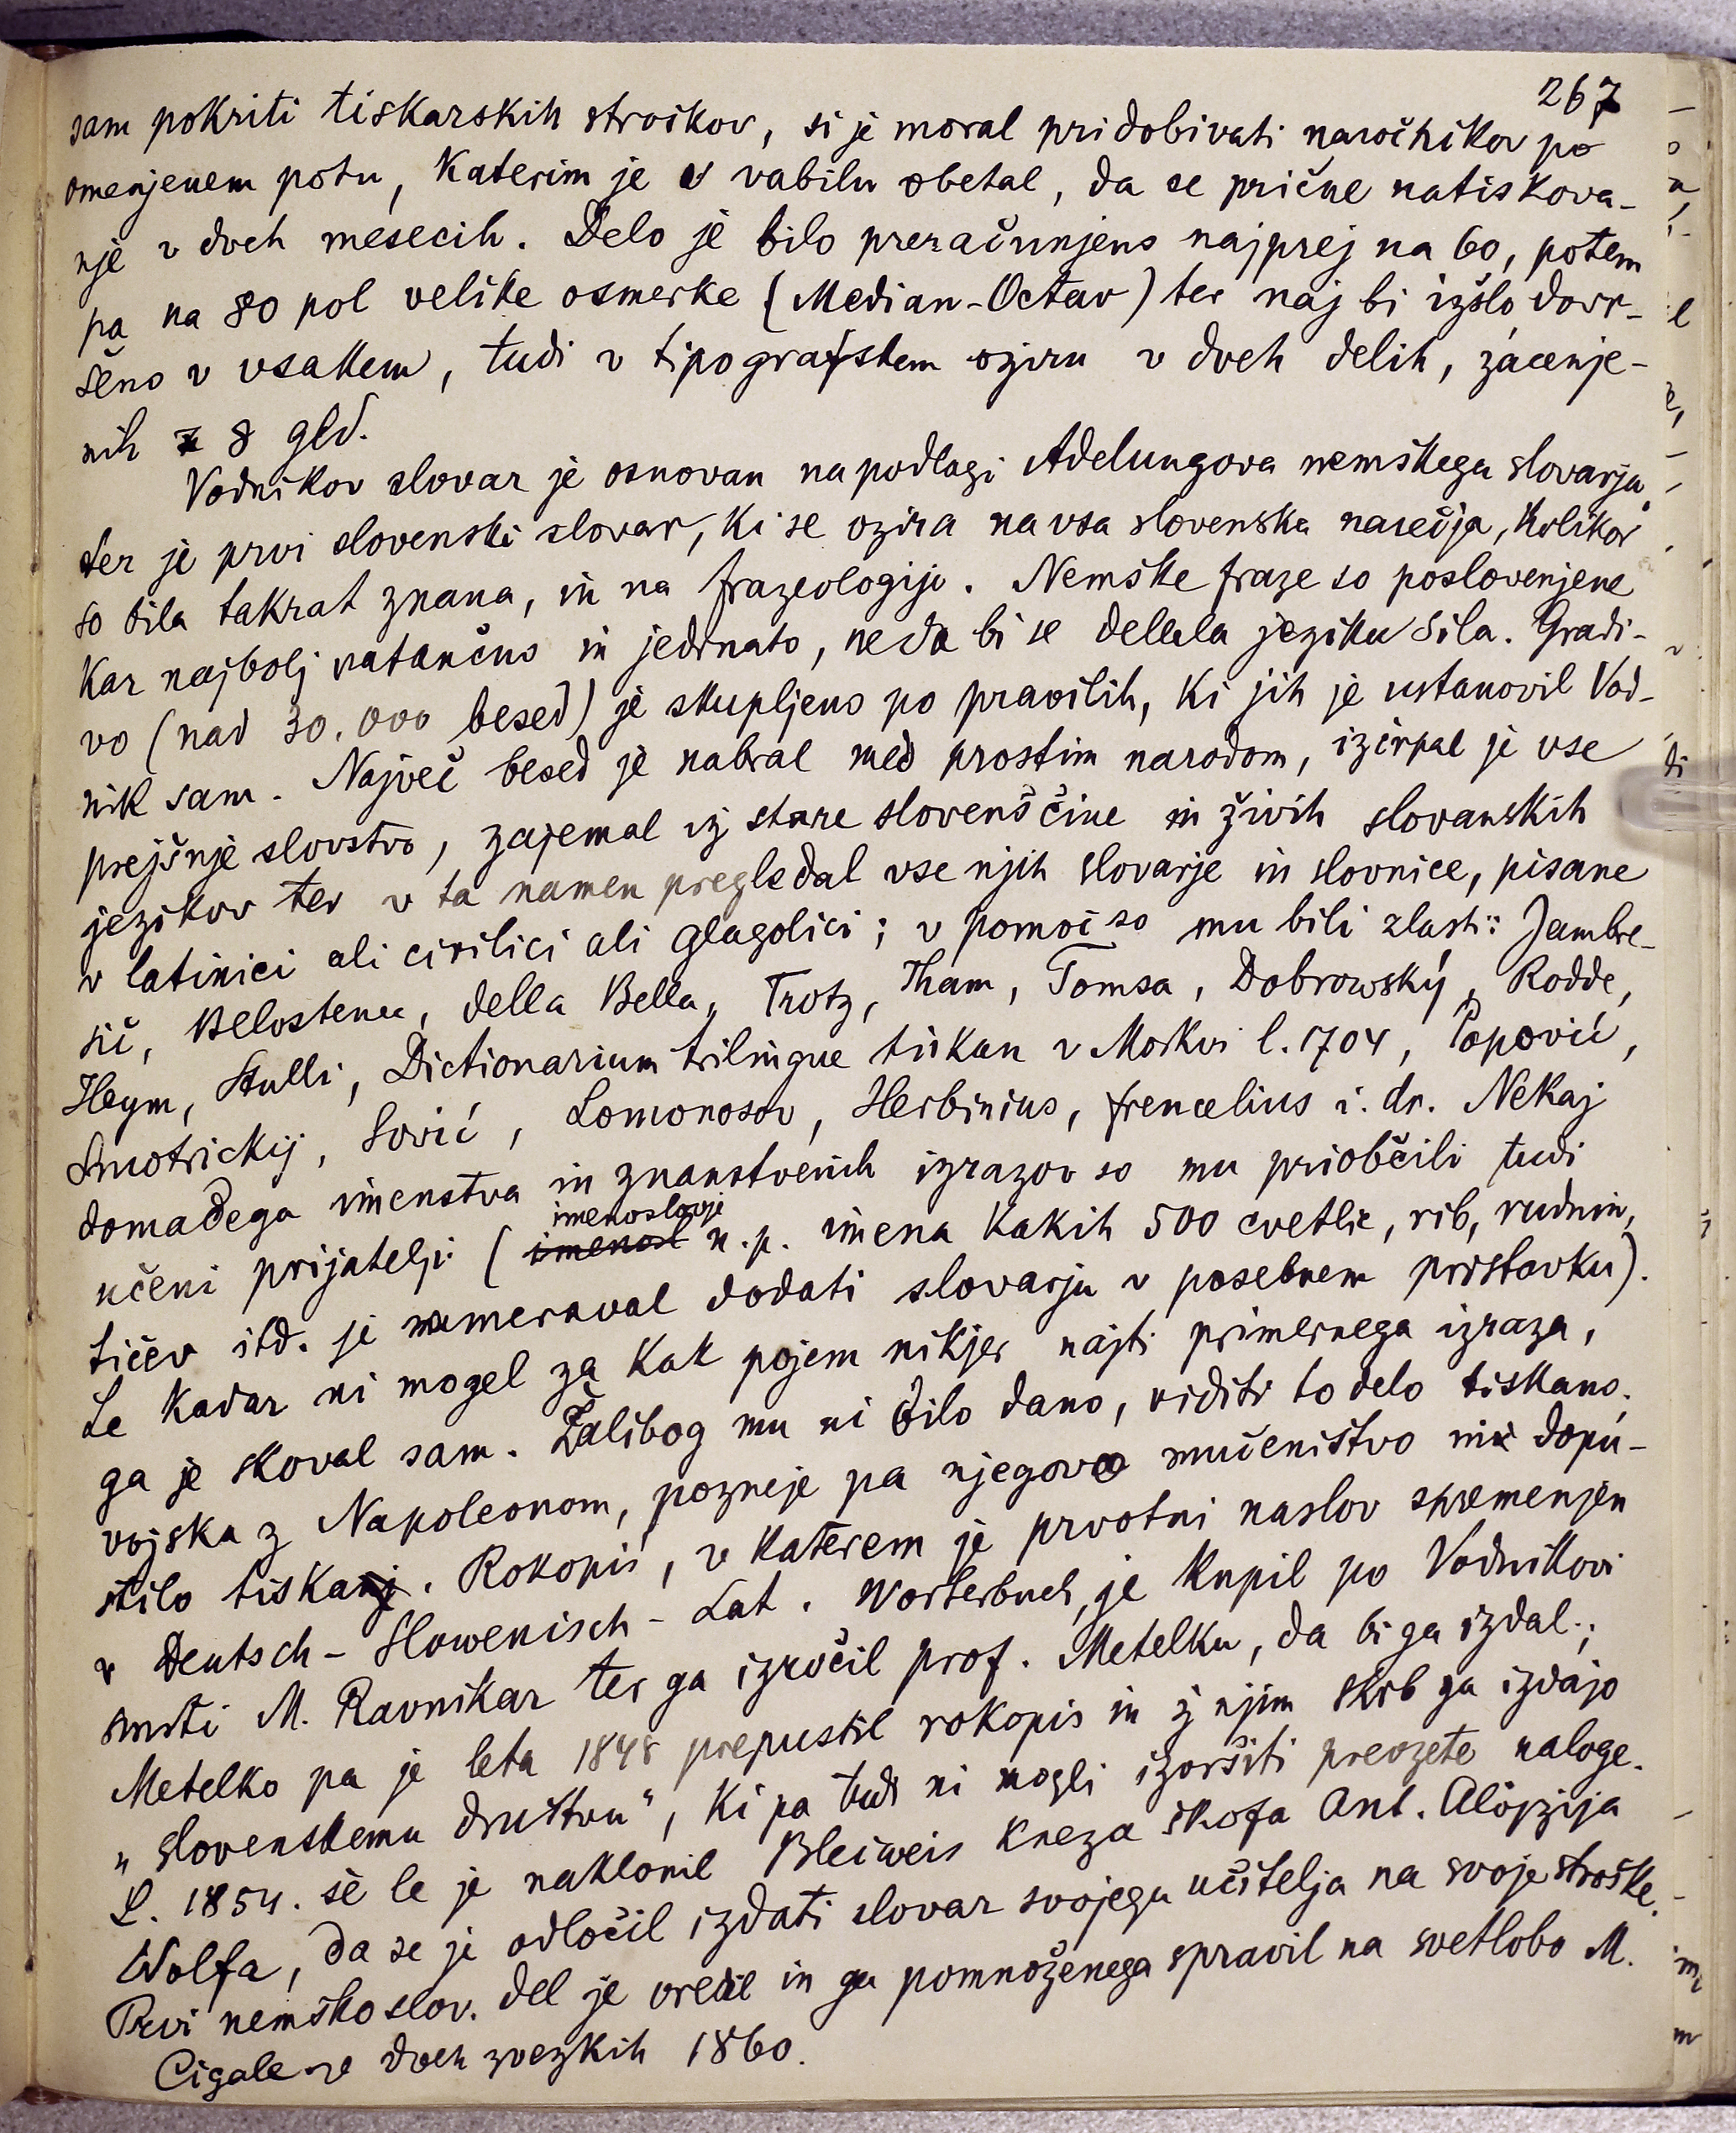 267
sam pokriti tiskarskih stroškov, si je moral pridobivati naročnikov po
omenjenem potu, katerim je v vabilu obetal, da se prične natiskova-
nje v dveh mesecih. Delo je bilo preračunjeno najprej na 60, potem
pa na 80 pol velike osmerke (Median-Octav) ter naj bi izšlo dovr-
šeno v vsakem, tudi v tipografskem oziru v dveh delih, zacenje-
nih z 8 gld.
Vodnikov slovar je osnovan na podlagi Adelungova nemškega slovarja
ter je prvi slovenski slovar, ki se ozira na vsa slovenska narečja, kolikor
so bila takrat znana, in na frazeologijo. Nemške fraze so poslovenjene
kar najbolj natančno in jedrnato, ne da bi se delala jeziku sila. Gradi-
vo (nad 30.000 besed) je skupljeno po pravilih, ki jih je ustanovil Vod-
nik sam. Največ besed je nabral med prostim narodom, izčrpal je vse
prejšnje slovstvo, zajemal iz stare slovenščine in živih slovanskih
jezikov ter v ta namen pregledal vse njih slovarje in slovnice, pisane
v latinici ali cirilici ali glagolici; v pomoč so mu bili zlasti: Jambre-
šič, Belostenec, della Bella, Trotz, Tham, Tomsa, Dobrowský, Rodde,
Heym, Stulli, Dictionarium trilingue tiskan v Moskvi l. 1704, Popović,
Smotrickij, Sović, Lomonosov, Herbinius, Frencelius i. dr. Nekaj
domačega imenstva in znanstvenih izrazov so mu priobčili tudi
imenoslovje
učeni prijatelji (imenosl n. p. imena kakih 500 cvetlic, rib, rudnin,
tičev itd. je nameraval dodati slovarju v posebnem pristavku).
Le kadar ni mogel za kak pojem nikjer najti primernega izraza,
ga je skoval sam. Žalibog mu ni bilo dano, viditi to delo tiskano.
vojska z Napoleonom, pozneje pa njegovo mučeništvo ni dopu-
stilo tiskanj. Rokopis, v katerem je prvotni naslov spremenjen
v Deutsch-Slowenisch-Lat. Worterbuch, je kupil po Vodnikovi
smrti M. Ravnikar ter ga izročil prof. Metelku, da bi ga izdal;
Metelko pa je leta 1848 prepustil rokopis in ž njim skrb za izdajo
„Slovenskemu društvu“, ki pa tudi ni mogli izvršiti prevzete naloge.
L. 1854. še le je naklonil Bleiweis kneza škofa Ant. Alojzija
Wolfa, da se je odločil izdati slovar svojega učitelja na svoje stroške.
Prvi nemškoslov. del je uredil in ga pomnoženega spravil na svetlobo M.
Cigale v dveh zvezkih 1860.